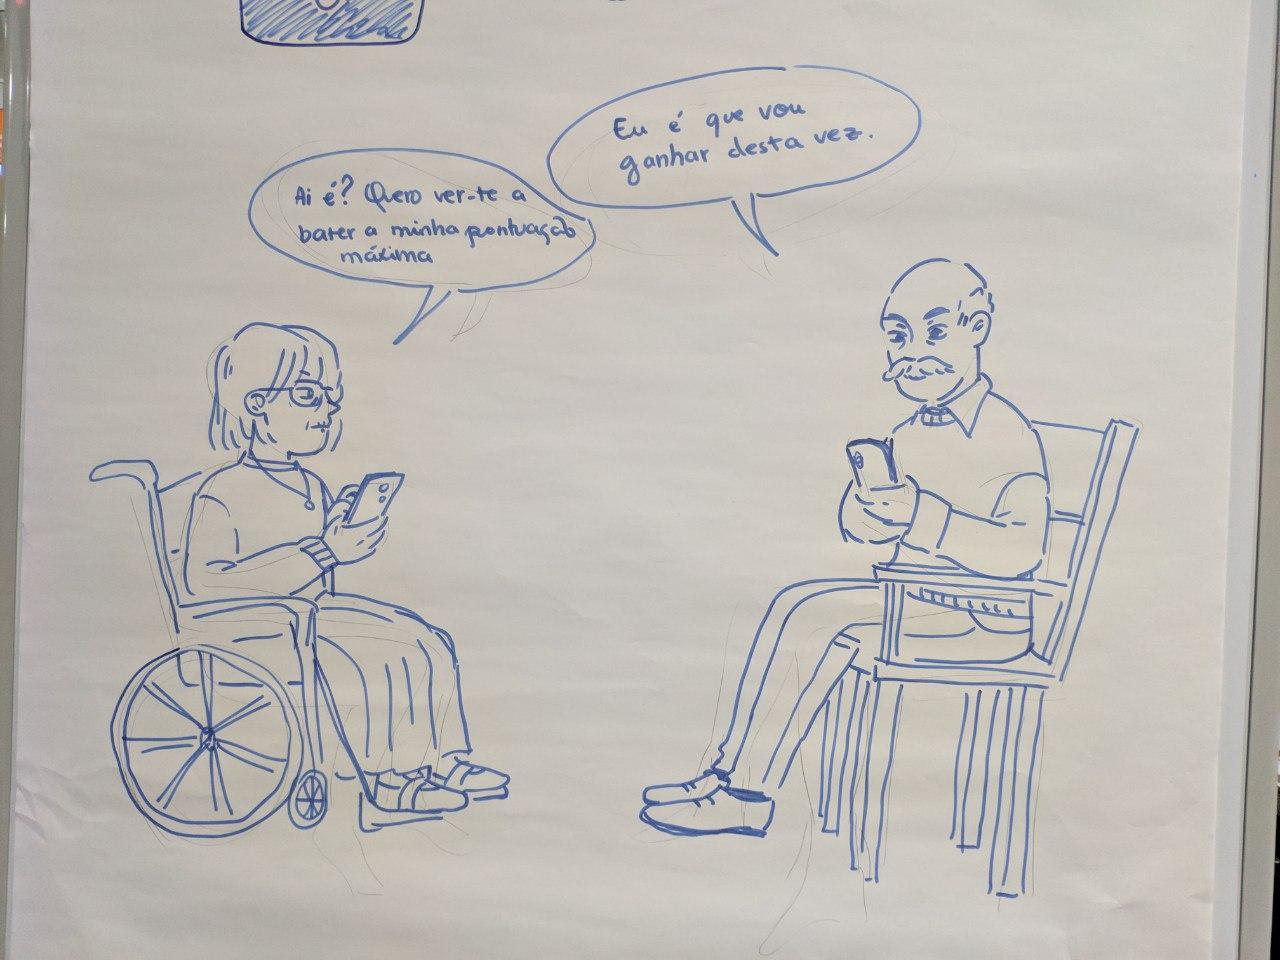 Eu é que vou
ganhar desta vez.
Ai é? Quero ver-te a
bater a minha pontuação
máxima